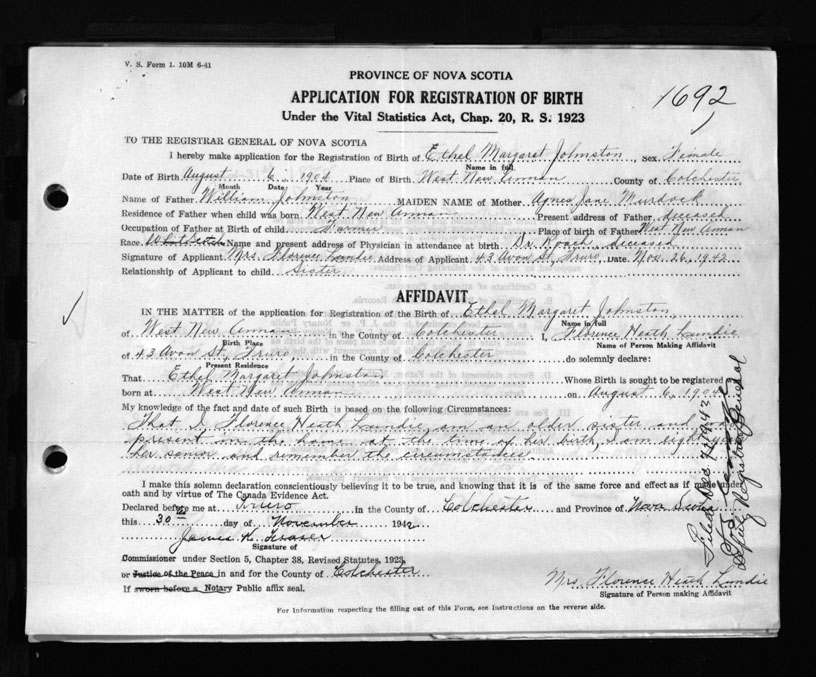 V. S. Form 1. 10M 6-41
PROVINCE OF NOVA SCOTIA
APPLICATION FOR REGISTRATION OF BIRTH
1692
Under the Vital Statistics Act, Chap. 20, R. S. 1923
TO THE REGISTRAR GENERAL OF NOVA SCOTIA
I hereby make application for the Registration of Birth of Ethel Margaret Johnston, Sex Female
Name in full
Date of Birth August 6 1904 Place of Birth West New Annan County of Colchester
Month Date Year
Name of Father William Johnston MAIDEN NAME of Mother Agnes Jane Murdock
Residence of Father when child was born West New Annan Present address of Father deceased
Occupation of Father at Birth of child Farmer Place of birth of Father West New Annan
Race White Scotch Name and present address of Physician in attendance at birth Dr. Roach, deceased
Signature of Applicant Mrs. Florence Lundie Address of Applicant 43 Avon St, Truro, Date Nov. 26, 1942
Relationship of Applicant to child Sister
AFFIDAVIT
IN THE MATTER of the application for Registration of the Birth of Ethel Margaret Johnston,
Name in full
of West New Annan in the County of Colchester I, Florence Heath Lundie
Birth Place Name of Person Making Affidavit
of 43 Avon St, Truro in the County of Colchester do solemnly declare:
Present Residence
That Ethel Margaret Johnston Whose Birth is sought to be registered
born at West New Annan on August 6, 1904
My knowledge of the fact and date of such Birth is based on the following Circumstances:
That I, Florence Heath Lundie, am an older sister and was
present in the home at the time of her birth, I am eight
her senior and remember the circumstances.
I make this solemn declaration conscientiously believing it to be true, and knowing that it is of the same force and effect as if made under
oath and by virtue of The Canada Evidence Act.
Declared before me at Truro in the County of Colchester and Province of Nova Scotia
this 30th day of November 1942
James K. Fraser
Signature of
Commissioner under Section 5, Chapter 38, Revised Statutes, 1923
or Justice of the Peace in and for the County of Colchester
If sworn before a Notary Public affix seal.
Mrs. Florence Heath Lundie
Signature of Person making Affidavit
For Information respecting the filling out of this Form, see Instructions on the reverse side.
Filed Dec 9 1942
Deputy Registrar General